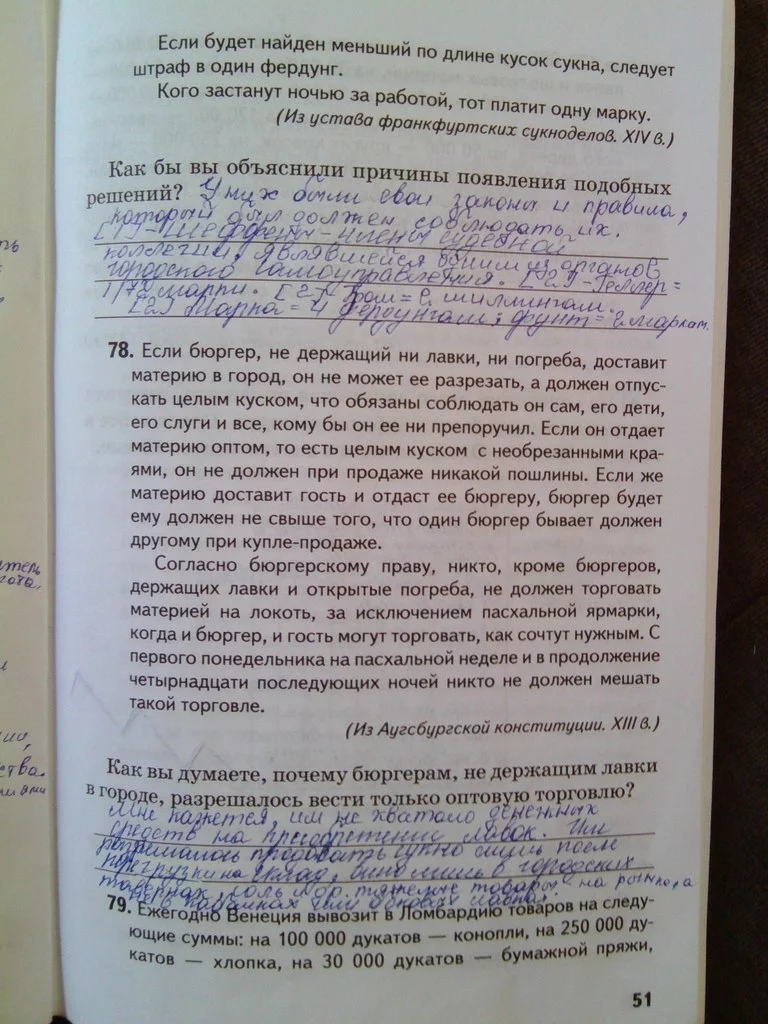 Если будет найден меньший по длине кусок сукна, следует
штраф в один фердунг.
Кого застанут ночью за работой, тот платит одну марку.
(Из устава франкфуртских сукноделов. XIV в.)
Как бы вы объяснили причины появления подобных
решений? У них были свои законы и правила,
который был должен соблюдать их.
[1] - Шеффены - члены судебной
коллегии, являвшейся одним из органов
городского самоуправления. [2] - Геллер =
1/72 марки. [2] Грош = 2 шиллингам.
[2] Марка = 4 фердунгам; фунт = 2 маркам.
78. Если бюргер, не держащий ни лавки, ни погреба, доставит
материю в город, он не может ее разрезать, а должен отпус-
кать целым куском, что обязаны соблюдать он сам, его дети,
его слуги и все, кому бы он ее ни препоручил. Если он отдает
материю оптом, то есть целым куском с необрезанными кра-
ями, он не должен при продаже никакой пошлины. Если же
материю доставит гость и отдаст ее бюргеру, бюргер будет
ему должен не свыше того, что один бюргер бывает должен
другому при купле-продаже.
Согласно бюргерскому праву, никто, кроме бюргеров,
держащих лавки и открытые погреба, не должен торговать
материей на локоть, за исключением пасхальной ярмарки,
когда и бюргер, и гость могут торговать, как сочтут нужным. С
первого понедельника на пасхальной неделе и в продолжение
четырнадцати последующих ночей никто не должен мешать
такой торговле.
(Из Аугсбургской конституции. XIII в.)
Как вы думаете, почему бюргерам, не держащим лавки
в городе, разрешалось вести только оптовую торговлю?
Мне кажется, им не хватало денежных
средств на приобретение лавок. Им
разрешалось продавать сукно лишь после
погрузки на склад, вино лишь в городских
тавернах, соль и др. тяжелые товары на рынке, а
не в
79. Ежегодно Венеция вывозит в Ломбардию товаров на следу-
ющие суммы: на 100 000 дукатов — конопли, на 250 000 ду-
катов — хлопка, на 30 000 дукатов — бумажной пряжи,
51